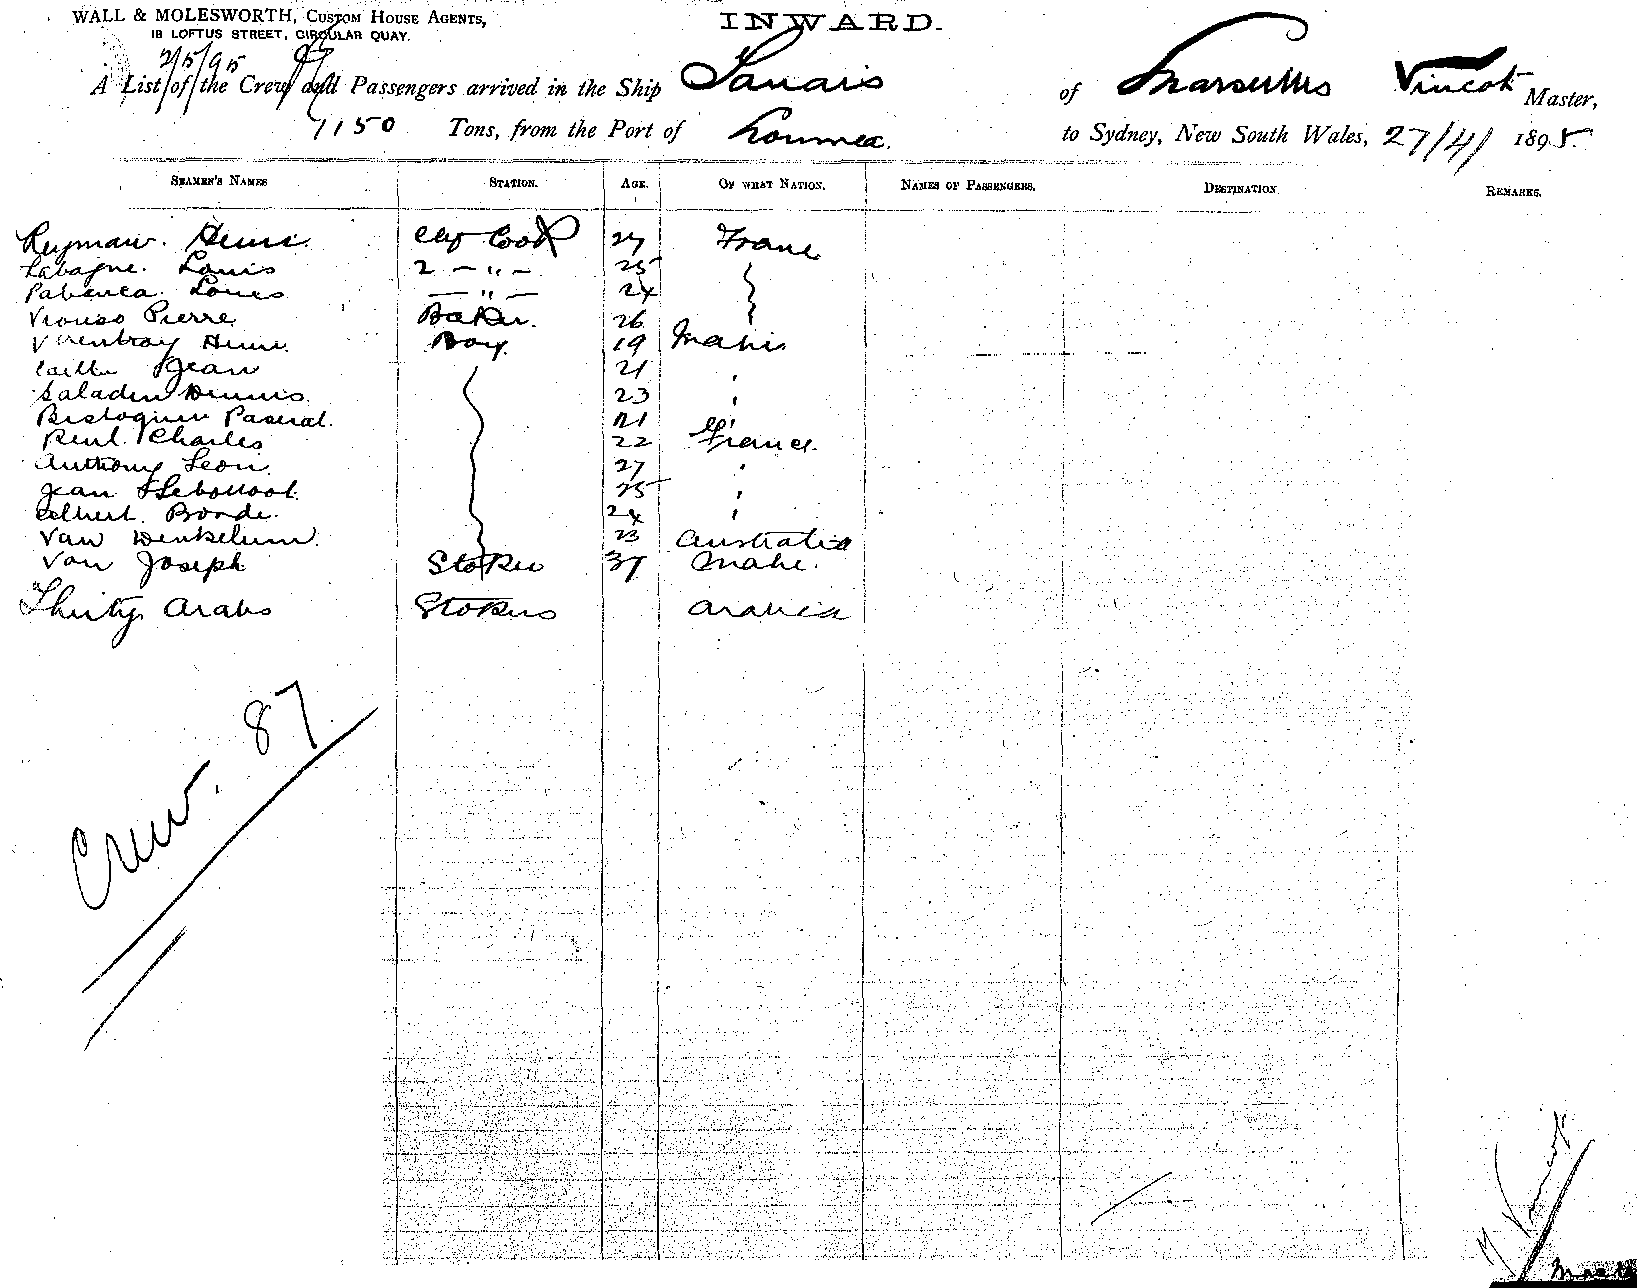 WALL & MOLESWORTH, CUSTOM HOUSE AGENTS,
18 LOFTUS STREET, CIRCULAR QUAY.
INWARD.
2/5/95
A List of the Crew and Passengers arrived in the Ship Tanais of Marseilles Vincot Master,
1150 Tons, from the Port of Noumea. to Sydney, New South Wales, 27/4/ 1895.
SEAMEN'S NAMES STATION. AGE. OF WHAT NATION. NAMES OF PASSENGERS. DESTINATION. REMARKS.
Henri Cook 27 France
Labagne. Louis 2 - " - 25
Louis - " - 24
Pierre Baker. 26
Henri. Boy. 19 Mahé
Jean 21 "
Saladin Dennis. 23 "
Pascral. 21 "
Charles 22 France.
Anthony Leon. 27 "
Jean 25 "
Albert. Bonde. 24 "
Van 23 Australia
Von Joseph Stoker 37 Mahe.
Thirty Arabs Stokers Arabia
Crew. 87